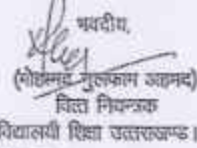 भवदीय,
(मोहम्मद गुलफाम अहमद)
वित्त नियन्त्रक
विद्यालयी शिक्षा उत्तराखण्ड।